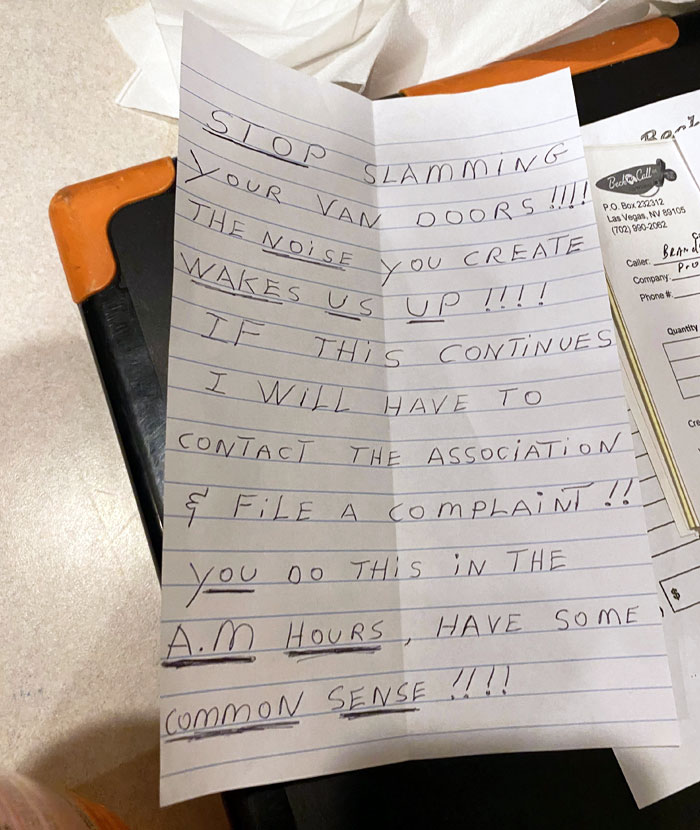 STOP SLAMMING
YOUR VAN DOORS !!!!
THE NOiSE YOU CREATE
WAKES US UP !!!!
IF THiS CONTiNUES
I WiLL HAVE TO
CONTACT THE ASSOCiATiON
& FiLE A COMPLAiNT !!
YOU DO THiS iN THE
A.M HOURS, HAVE SOME
COMMON SENSE !!!!
P.O. Box 232312
Las Vegas, NV 89105
(702) 990-2062
Caller:
Company:
Phone #:
Quantity
$